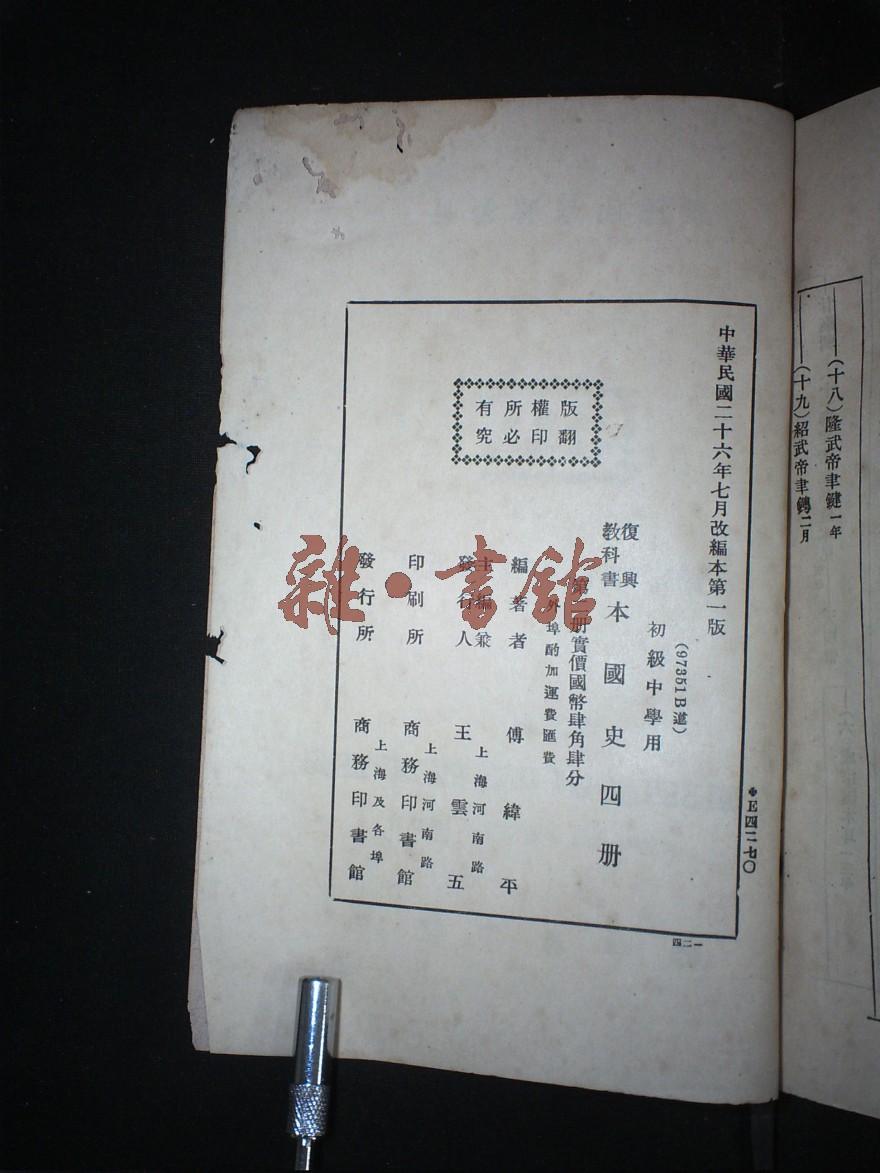 (十八)隆武帝聿鍵一年
(十九)紹武帝聿鐭二月
中華民國二十六年七月改編本第一版
(97351B道)
初級中學用
復興
教科書
本國史四册
册實價國幣肆角肆分
外埠酌加運費匯費
版權所有
翻印必究
編著者 傅緯平
主編兼
發行人
上海河南路
王雲五
印刷所
上海河南路
商務印書館
發行所
上海及各埠
商務印書館
一二四
雜·書館